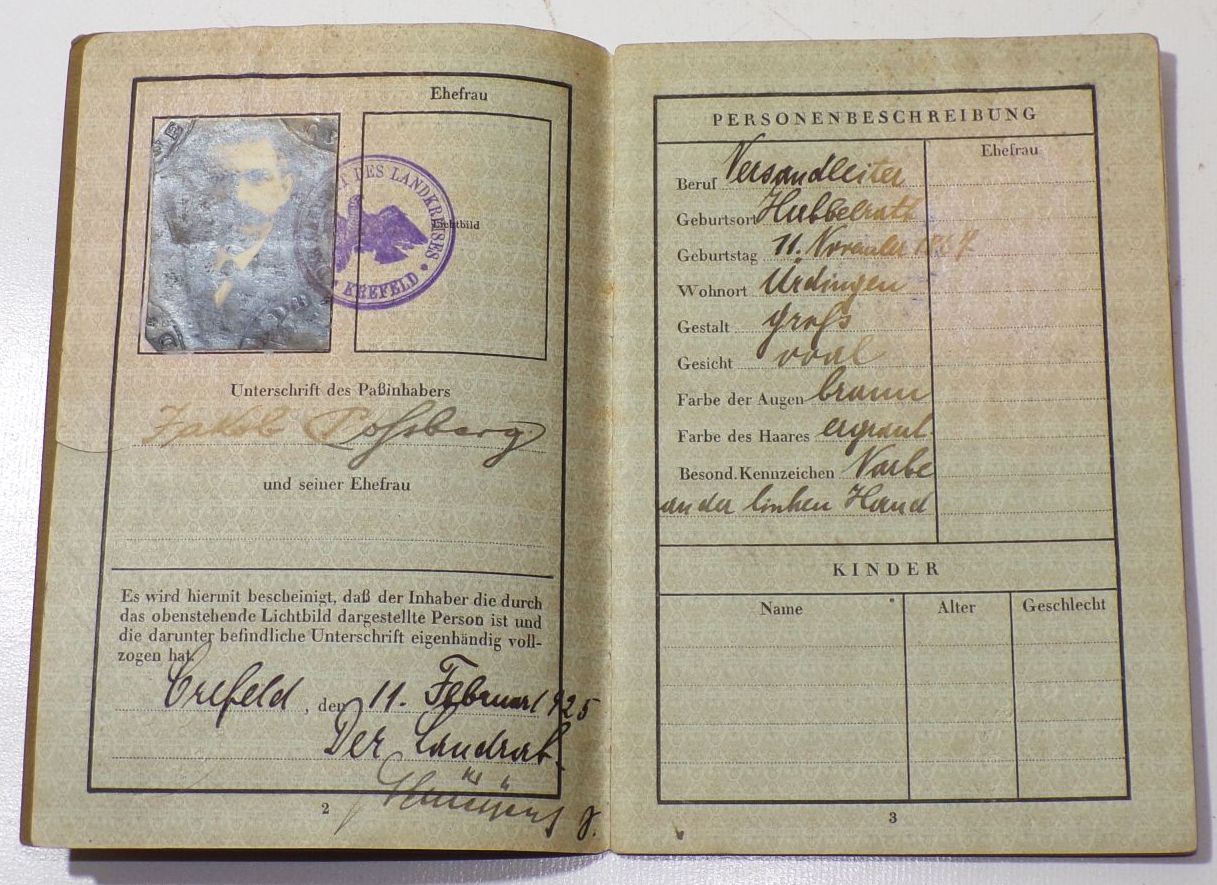 Ehefrau
DES LANDKREISES
KREFELD
Lichtbild
Unterschrift des Paßinhabers
Jakob Roßberg
und seiner Ehefrau
Es wird hiermit bescheinigt, daß der Inhaber die durch
das obenstehende Lichtbild dargestellte Person ist und
die darunter befindliche Unterschrift eigenhändig voll-
zogen hat.
Crefeld, den 11. Februar 1925
Der Landrat.
2
PERSONENBESCHREIBUNG
Ehefrau
Beruf Versandleiter
Geburtsort Hubbelrath
Geburtstag 11. November
Wohnort Ürdingen
Gestalt groß
Gesicht oval
Farbe der Augen braun
Farbe des Haares ergraut
Besond. Kennzeichen Narbe
an der linken Hand
KINDER
Name Alter Geschlecht
3